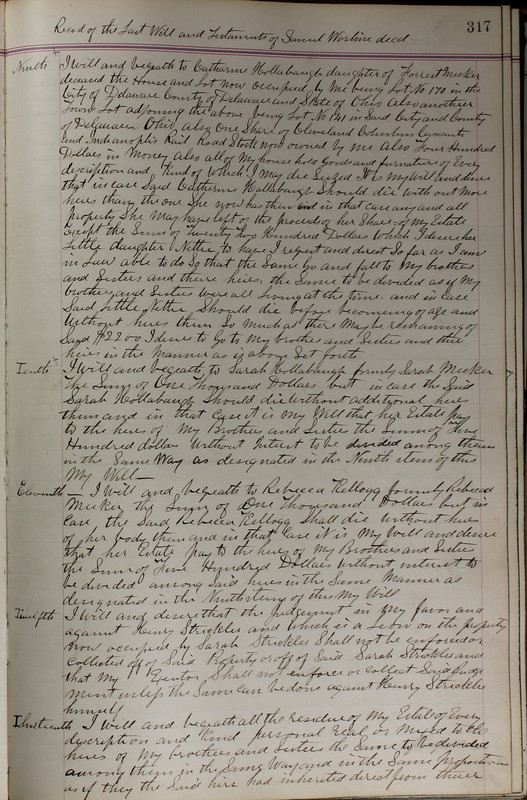 317
Record of the Last Will and Testament of Samuel Worline decd
Ninth I will and begeath to Catharine Hollabaugh daughter of Forrest Meeker
deceased the House and Lot now occupied by Me being Lot No 170 in the
City of Delaware County of Delaware and State of Ohio also another
Town Lot adjoining the above being Lot No 171 in Said City and County
of Delaware Ohio also One Share of Cleveland Columbus Cincinnati
and Indianaplis Rail Road Stock now owned by me Also Four Hundred
Dollars in Money Also all of My house hold Goods and furnature of Every
description and Kind of which I may die Seized It is My will and desire
that in case Said Catharine Hollabaugh Should die with out More
heirs than the one She now has then in that case any and all
property She May have left of the proceeds of her Share of My Estate
Except the Sum of Twenty two Hundred Dollars which I desire her
Little daughter Nettie to have I request and direct So far as I am
in Law able to do So that the Same Go and fall to My brothers
and Sisters and there heirs, the Same to be divided as if My
brothers and Sisters were all living at the time. and in case
Said Little Nettie Should die before becomeing of age and
Without heirs then So Much as there May be remaining of
Said $2200 I desire to Go to My brothers and Sisters and their
heirs in the Manner as is above Set forth
Tenth I will and begeath to Sarah Hollabaugh formly Sarah Meeker
the Sum of One Thousand Dollars but in case the Said
Sarah Hollabaugh Should die without additional heirs
then and in that Case it is My Will that her Estate pay
to the heirs of My Brothers and Sisters the Sum of Five
Hundred dollars Without Intrest to be divided among them
in the Same Way as designated in the Ninth item of this
My Will
Eleventh I will and begeath to Rebecca Kellogg formly Rebecca
Meeker the Sum of One Thousand Dollars but in
Case the Said Rebecca Kellogg Shall die without heirs
of her body then and in that Case it is My Will and desire
that her Estate pay to the heirs of My Brothers and Sisters
the Sum of Five Hundred Dollars without interest to
be divided among Said heirs in the Same Manner as
designated in the Ninth item of this My Will
Twelfth I will and desire that the Judgement in My favor and
against Henry Strickles and which is a Lien on the property
now occupied by Sarah Strickles Shall not be enforced or
Collected of or Said Property or off of Said Sarah Strickles and
that My Exentor Shall not enforce or collect Said Judge
ment unless the Same can be done against Henry Strickles
himself
Thirteenth I will and begeath all the residue of My Estate of Every
description and Kind personal Real or Mixed to the
heirs of My brothers and Sisters the Same to be divided
among them in the Same Way and in the Same proportions
as if they the Said heirs had inherited direct from their